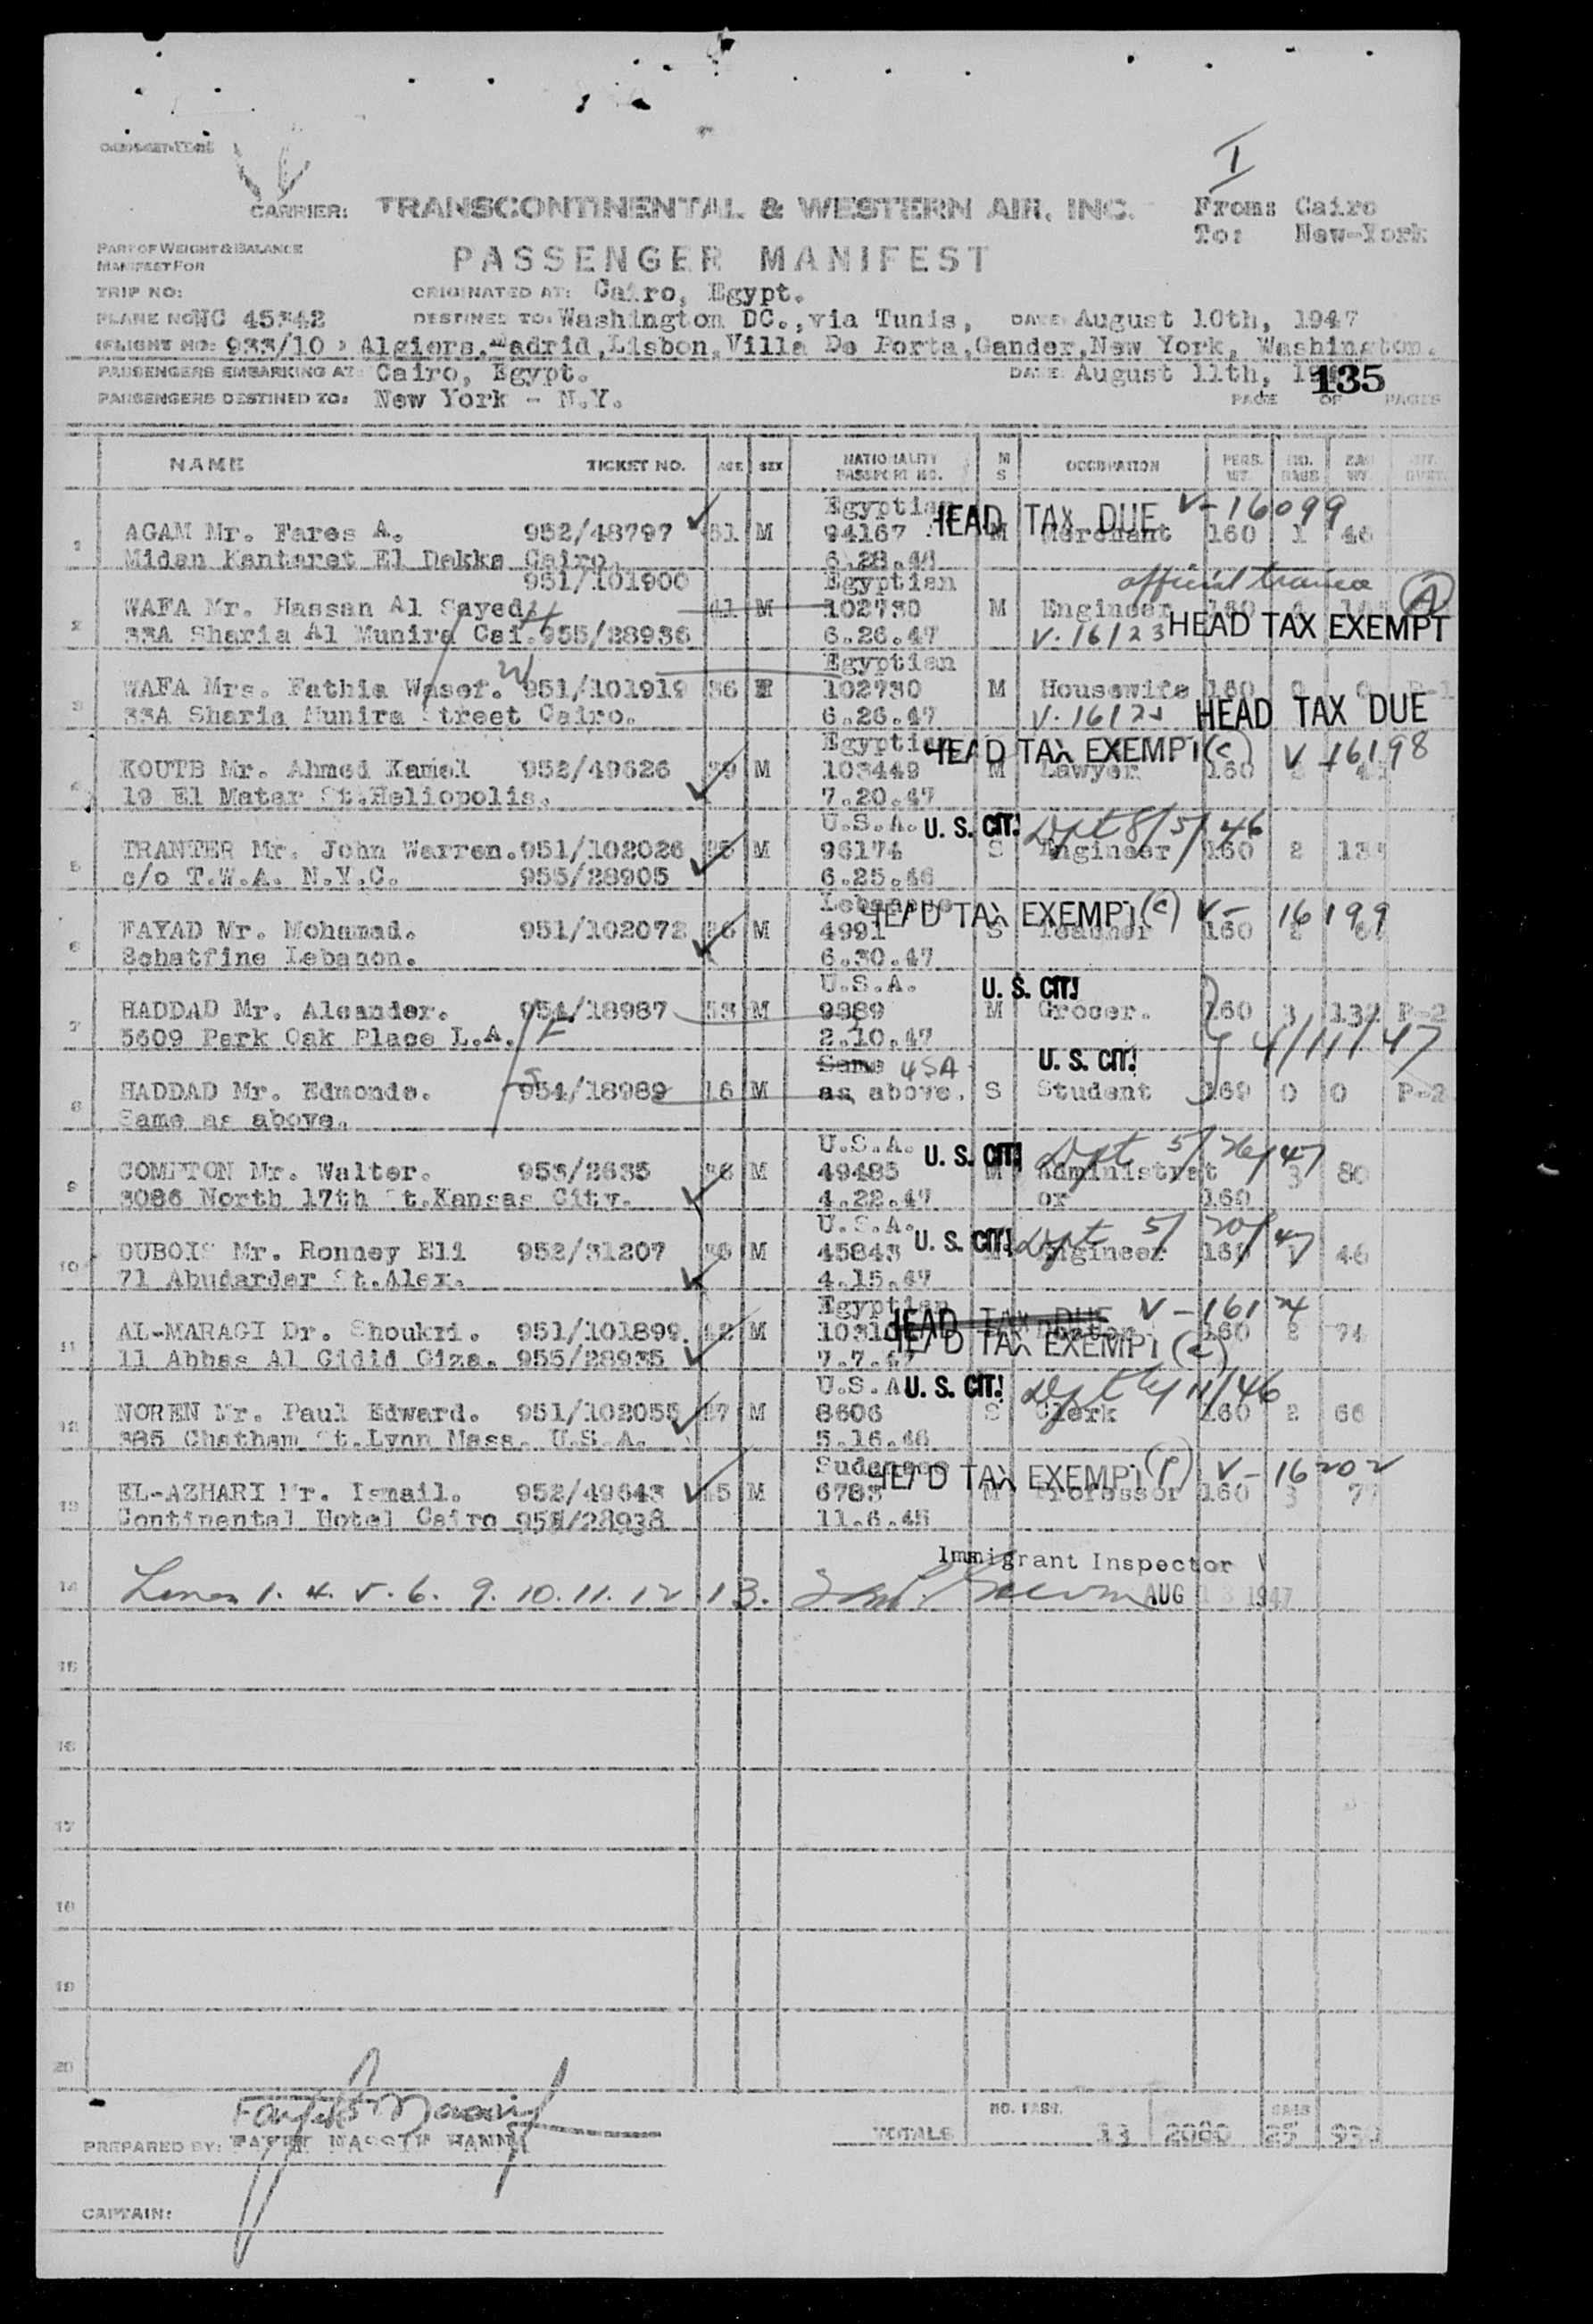 I
CARRIER: TRANSCONTINENTAL & WESTERN AIR, INC.
From: Cairo
To: New-York
PART OF WEIGHT & BALANCE
MANIFEST FOR
PASSENGER MANIFEST
TRIP NO:
ORIGINATED AT: Cairo, Egypt.
PLANE NO NC 45342
DESTINED TO: Washington DC., via Tunis, DATE August 10th, 1947
(FLIGHT NO: 933/10 Algiers, Madrid, Lisbon, Villa De Porta, Gander, New York, Washington.
PASSENGERS EMBARKING AT: Cairo, Egypt. DATE: August 11th,
135
PASSENGERS DESTINED TO: New York - N.Y. PAGE OF PAGES
NAME TICKET NO. AGE SEX NATIONALITY PASSPORT NO. M S OCCUPATION PERS. WT. NO. BAGS BAG WT.
Egyptian HEAD TAX DUE V-16099
1 AGAM Mr. Fares A. 952/48797 M 94167 M Merchant 160 1 46
Midan Kantaret El Dekka Cairo. 6.28.46
951/101900 Egyptian official trainee
2 WAFA Mr. Hassan Al Sayed 41 M 102730 M Engineer 160 A
33A Sharia Al Munira Cai. 955/28936 6.26.47 V.16123 HEAD TAX EXEMPT
Egyptian
3 WAFA Mrs. Fathia Wasef. 951/101919 36 F 102730 M Housewife 160 0 0
33A Sharia Munira Street Cairo. 6.26.47 HEAD TAX DUE
Egyptian HEAD TAX EXEMPT (c) V-16198
4 KOUTB Mr. Ahmed Kamel 952/49626 39 M 103449 M Lawyer 160
19 El Matar St. Heliopolis. 7.20.47
U.S.A. U. S. CIT. Dept 8/5/46
5 TRANTER Mr. John Warren. 951/102026 M 96174 S Engineer 160 2
c/o T.W.A. N.Y.C. 955/28905 6.25.46
Lebanese HEAD TAX EXEMPT (c) V- 16199
6 FAYAD Mr. Mohamad. 951/102072 M 4991 S Teacher 160 2
Schatfine Lebanon. 6.30.47
U.S.A. U. S. CIT.
7 HADDAD Mr. Aleander. 954/18987 53 M 9889 M Grocer. 160 3 132 P-2
5609 Park Oak Place L.A. 2.10.47 4/11/47
Same USA U. S. CIT.
8 HADDAD Mr. Edmonde. 954/18989 16 M as above. S Student 160 0 0 P-2
Same as above.
U.S.A. U. S. CIT. Dept 5/26/47
9 COMPTON Mr. Walter. 953/2635 36 M 49485 M Administrat 3 80
3086 North 17th St. Kansas City. 4.22.47 or 160
U.S.A. U. S. CIT. Dept 5/20/47
10 DUBOIS Mr. Ronney Eli 952/31207 36 M 45843 Engineer 160 1 46
71 Abudarder St. Alex. 4.15.47
Egyptian HEAD TAX DUE V-16124
11 AL-MARAGI Dr. Shoukri. 951/101899 M Doctor 160 2 74
11 Abbas Al Gidid Giza. 955/28935 7.7.47 HEAD TAX EXEMPT (c)
U.S.A U. S. CIT. Dept 11/46
12 NOREN Mr. Paul Edward. 951/102055 27 M 8606 S Clerk 160 2 66
385 Chatham St. Lynn Mass. U.S.A. 5.16.46
Sudanese HEAD TAX EXEMPT (P) V-16202
13 EL-AZHARI Mr. Ismail. 952/49643 45 M 6783 M Professor 160 3
Continental Hotel Cairo 955/28938 11.6.45
Immigrant Inspector
14 Lines 1. 4. 5. 6. 9. 10. 11. 12. 13. AUG 13 1947
15
16
17
18
19
20
PREPARED BY: NASSIF HANNA
NO. PASS. BAGS
TOTALS 13 2080 25 930
CAPTAIN: